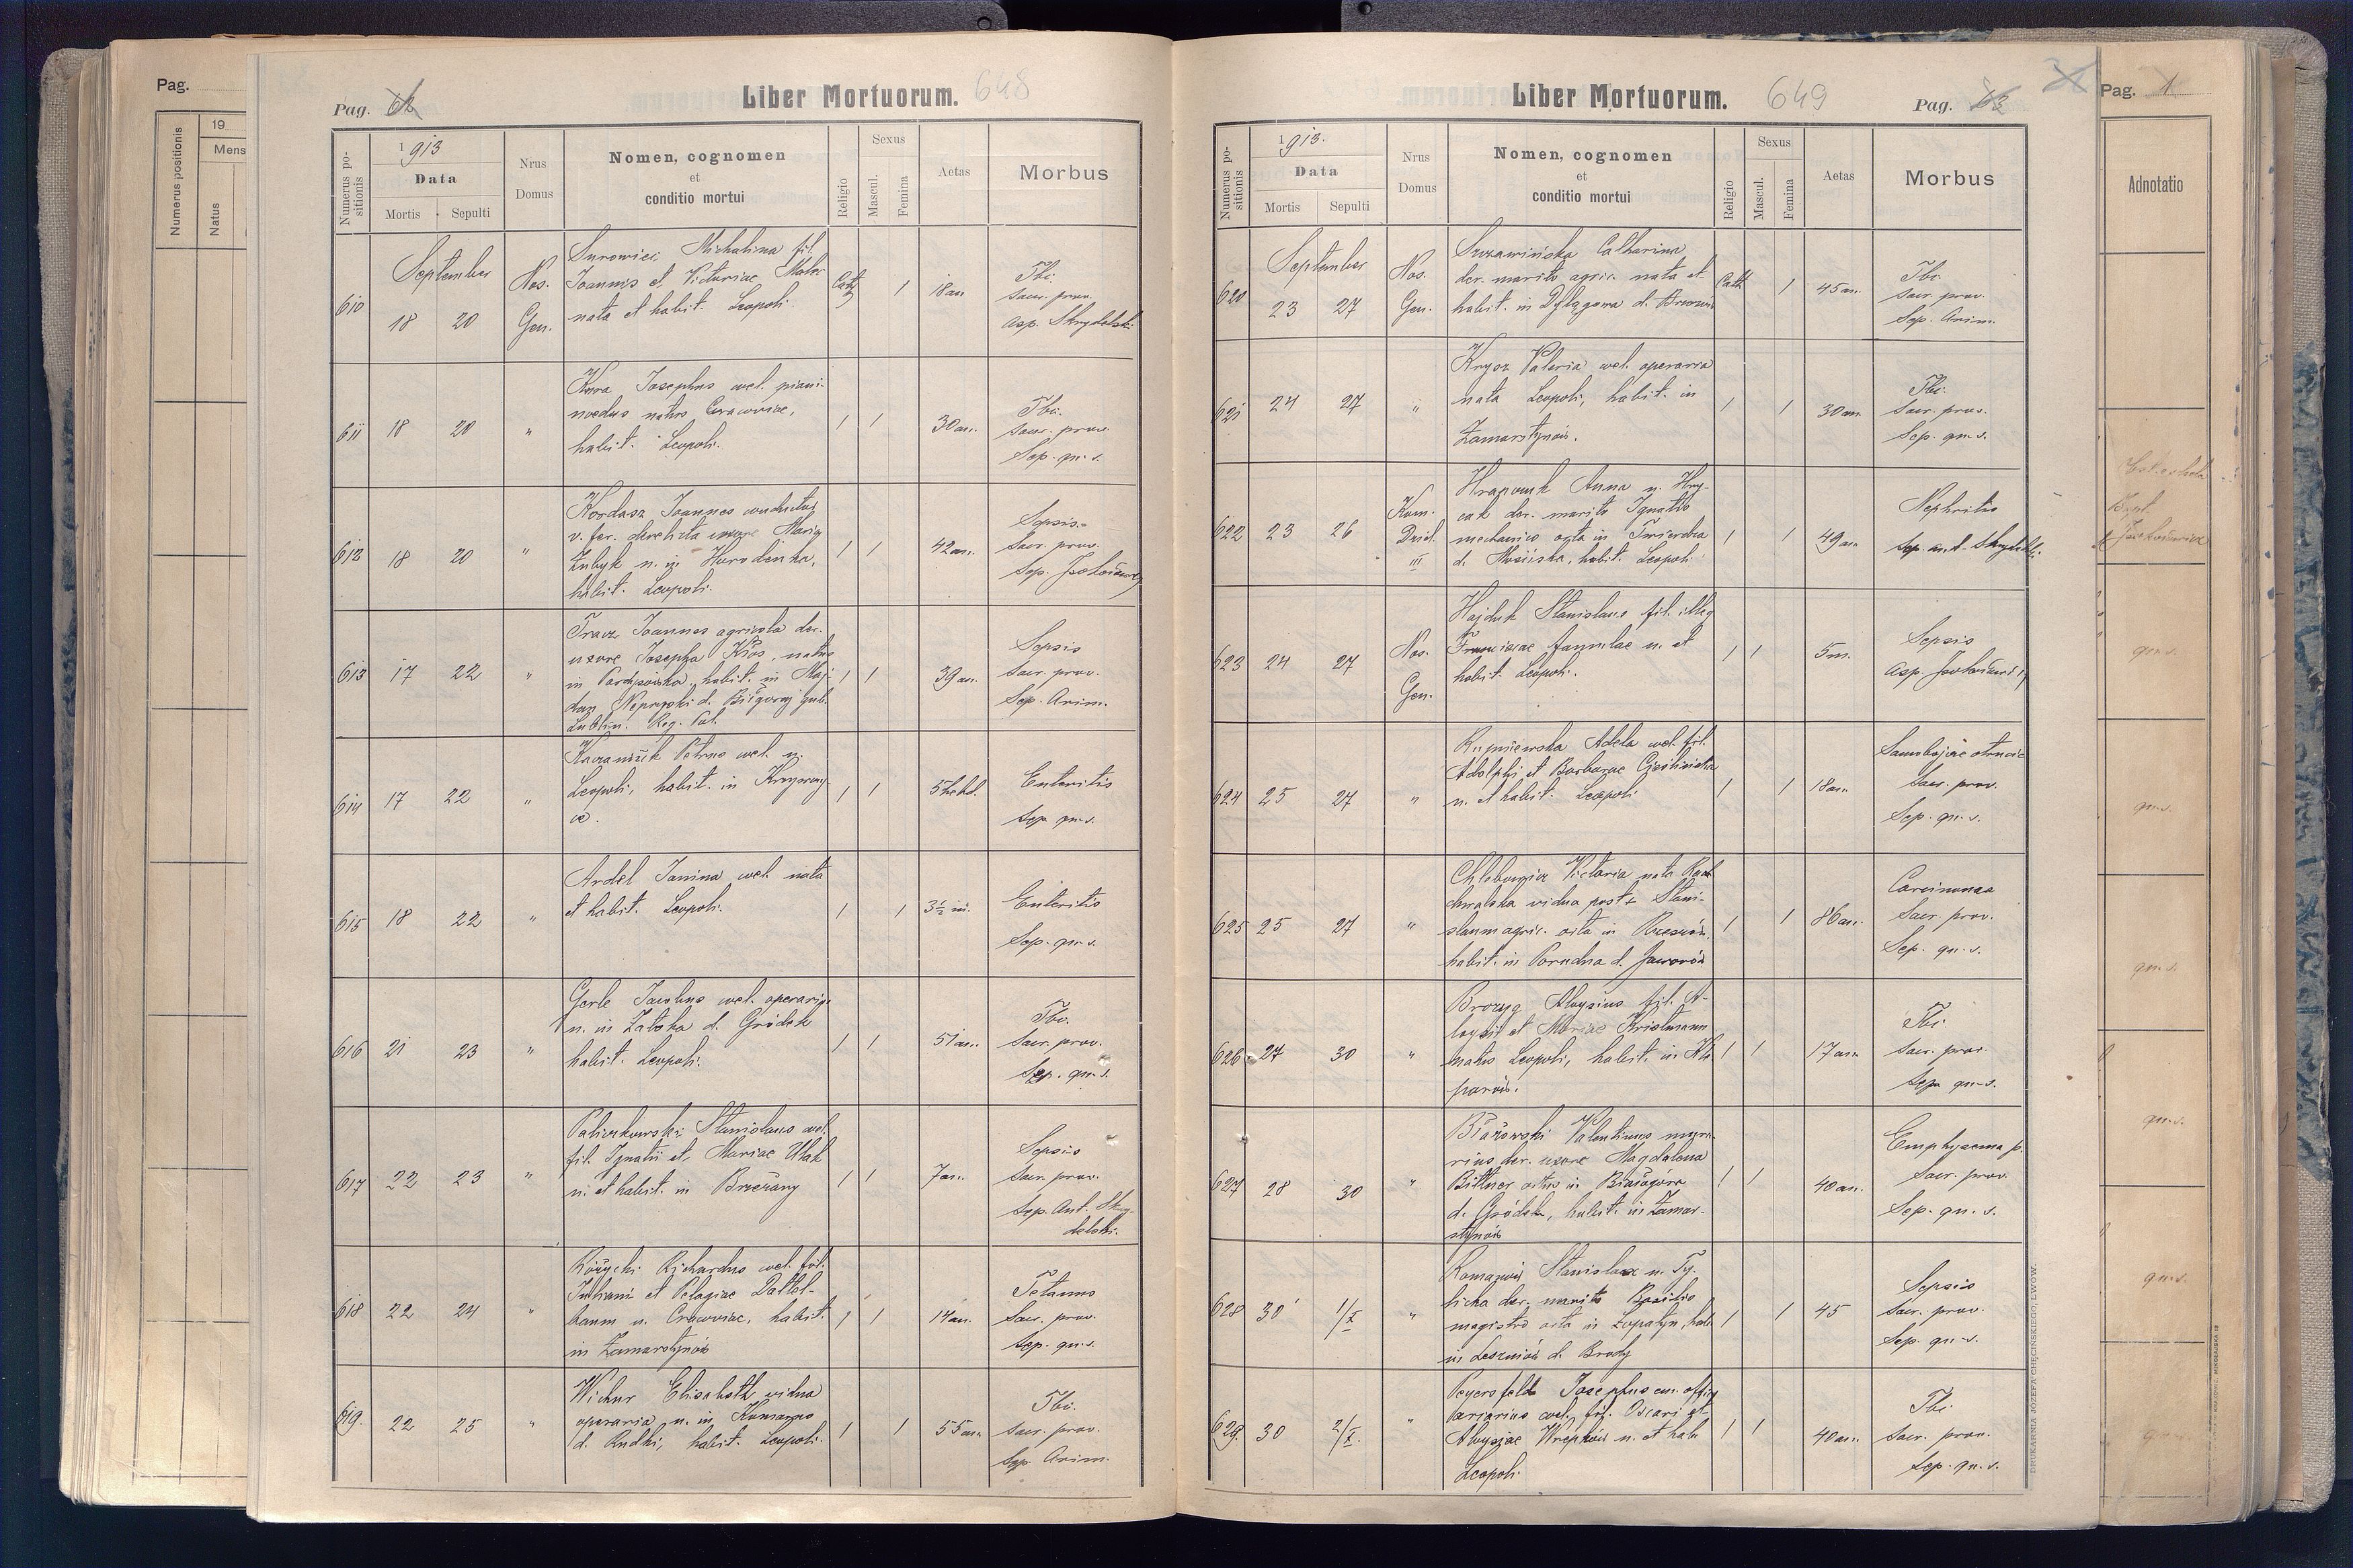 Pag.
Numerus positionis
19
Mens
Natus
Pag. 62
Liber Mortuorum. 648
Numerus positionis
1913
Data
Mortis
Sepulti
Nrus Domus
Nomen, cognomen
et
conditio mortui
Religio
Sexus
Mascul.
Femina
Aetas
Morbus
September
610 18 20
Nos. Gen.
Surowiec Michalina fil.
Joannis et Victoriae
nata et habit. Leopoli.
Cath
1
18 an.
Tbc.
Sacr. prov.
asp. Skrydelski
611 18 20 "
Josephus coel.
natus Cracoviae,
habit. Leopoli.
1 1
30 an.
Tbc.
Sacr. prov.
Sep. qu. s.
612 18 20 "
Kordasz Joannes conductor
v. fer. derelicta uxore Maria
Zubyk n. in Horodenka,
habit. Leopoli.
1 1
42 an.
Sepsis
Sacr. prov.
Sep.
613 17 22 "
Tracz Joannes agricola der.
uxore Josepha Kłos, natus
in habit. in Maj-
dan Nepryski d. Biłgoraj Gub.
Lublin. Reg. Pol.
1 1
39 an.
Sepsis
Sacr. prov.
Sep. Anim.
614 17 22 "
Petrus coel. n.
Leopoli, habit. in Krzywczy-
ce.
1 1
5 hebd.
Enteritis
Sep. qu. s.
615 18 22 "
Ardel Janina coel. nata
et habit. Leopoli.
1 1
3½ m.
Enteritis
Sep. qu. s.
616 21 23 "
Gerle Jacobus coel. operarius
n. in Zatoka d. Gródek
habit. Leopoli.
1 1
51 an.
Tbc.
Sacr. prov.
Sep. qu. s.
617 22 23 "
Paliczkowski Stanislaus coel.
fil. Ignatii et Mariae Ulak
n. et habit. in Brzeżany
1 1
7 an.
Sepsis
Sacr. prov.
Sep. Ant. Skry-
delski.
618 22 24 "
Różycki Richardus coel. fil.
Juliani et Pelagiae Dattel-
baum n. Cracoviae, habit.
in Zamarstynów
1 1
14 an.
Tetanus
Sacr. prov.
Sep. qu. s.
619. 22 25 "
Wichur Elisabeth vidua
operaria n. in Komarno
d. Rudki, habit. Leopoli.
1 1
55 an.
Tbc.
Sacr. prov.
Sep. Anim.
Liber Mortuorum. 649
Pag. 63
Numerus positionis
1913.
Data
Mortis
Sepulti
Nrus Domus
Nomen, cognomen
et
conditio mortui
Religio
Sexus
Mascul.
Femina
Aetas
Morbus
September
620 23 27
Nos. Gen.
Szczawińska Catharina
der. marito agric. nata et
habit. in Dylągowa d. Brzozów
Cath
1
45 an.
Tbc.
Sacr. prov.
Sep. Anim.
621 24 27 "
Krysz Valeria coel. operaria
nata Leopoli, habit. in
Zamarstynów.
1 1
30 an.
Tbc.
Sacr. prov.
Sep. qu. s.
622 23 26
Kom. Dziel. III
Anna n. Hry-
cak der. marito Ignatio
mechanico orta in Twierdza
d. Mościska, habit. Leopoli.
1 1
49 an.
Nephritis
Sep. ant. Skrydelski.
623 24 27
Nos. Gen.
Hajduk Stanislaus fil. illeg
Franciscae famulae n. et
habit. Leopoli.
1 1
5 m.
Sepsis
asp.
624 25 27 "
Adela coel. fil.
Adolphi et Barbarae
n. et habit. Leopoli
1 1
18 an.
Sacr. prov.
Sep. qu. s.
625 25 27 "
Victoria nata
vidua post + Stani-
slaum agric. orta in Rzeszów,
habit. in Porudna d. Jaworów
1 1
86 an.
Carcinoma
Sacr. prov.
Sep. qu. s.
626 27 30 "
Brozyg Aloysius fil. A-
loysii et Mariae Kristmann
natus Leopoli, habit. in Kle-
parów.
1 1
17 an.
Tbc.
Sacr. prov.
Sep. qu. s.
627 28 30 "
Błażowski Valentinus
der. uxore Magdalena
Bittner ortus in Białogóra
d. Gródek, habit. in Zamar-
stynów
1 1
40 an.
Emphysema p.
Sacr. prov.
Sep. qu. s.
628 30 1/X "
Stanislaa n. Ty-
licka der. marito Basilio
magistro orta in Łopatyn, hab.
in Leszniów d. Brody
1 1
45
Sepsis
Sacr. prov.
Sep. qu. s.
629. 30 2/X. "
Peyersfeld Josephus em.
coel. fil. Oscari et
Aloysiae n. et hab.
Leopoli.
1 1
40 an.
Tbc.
Sacr. prov.
Sep. qu. s.
DRUKARNIA JÓZEFA CHĘCIŃSKIEGO, LWÓW.
Pag. 1
Adnotatio
qu. s.
qu. s.
qu. s.
qu. s.
qu. s.